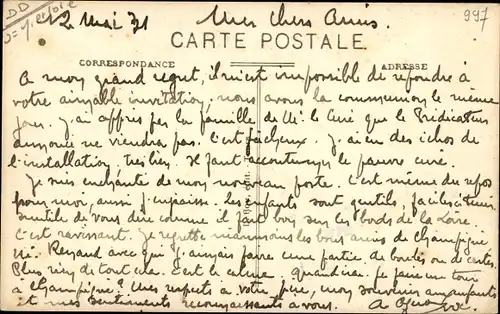 12 Mai 31 Mes Chers Amis.
997
CARTE POSTALE
CORRESPONDANCE ADRESSE
A mon grand regret, il m'est impossible de répondre à
votre aimable invitation; nous avons la communion le même
jour. J'ai appris par la famille de Mr. le Curé que le Prédicateur
annoncé ne viendra pas. C'est fâcheux. J'ai eu des échos de
l'installation, très bien. Il faut accoutumer le pauvre curé.
Je suis enchanté de mon nouveau poste. C'est même du repos
pour moi, aussi j'engraisse. Les enfants sont gentils, faciles à tenir.
Inutile de vous dire comme il fait bon sur les bords de la Loire.
C'est ravissant. Je regrette néanmoins les bons amis de Champigné
Mr. Renaud avec qui j'aimais faire une partie de boules ou de cartes.
Plus rien de tout cela. C'est le calme. Quand irai-je faire un tour
à Champigné? Mes respects à votre père, mon souvenir aux enfants
et mes sentiments reconnaissants à vous. A